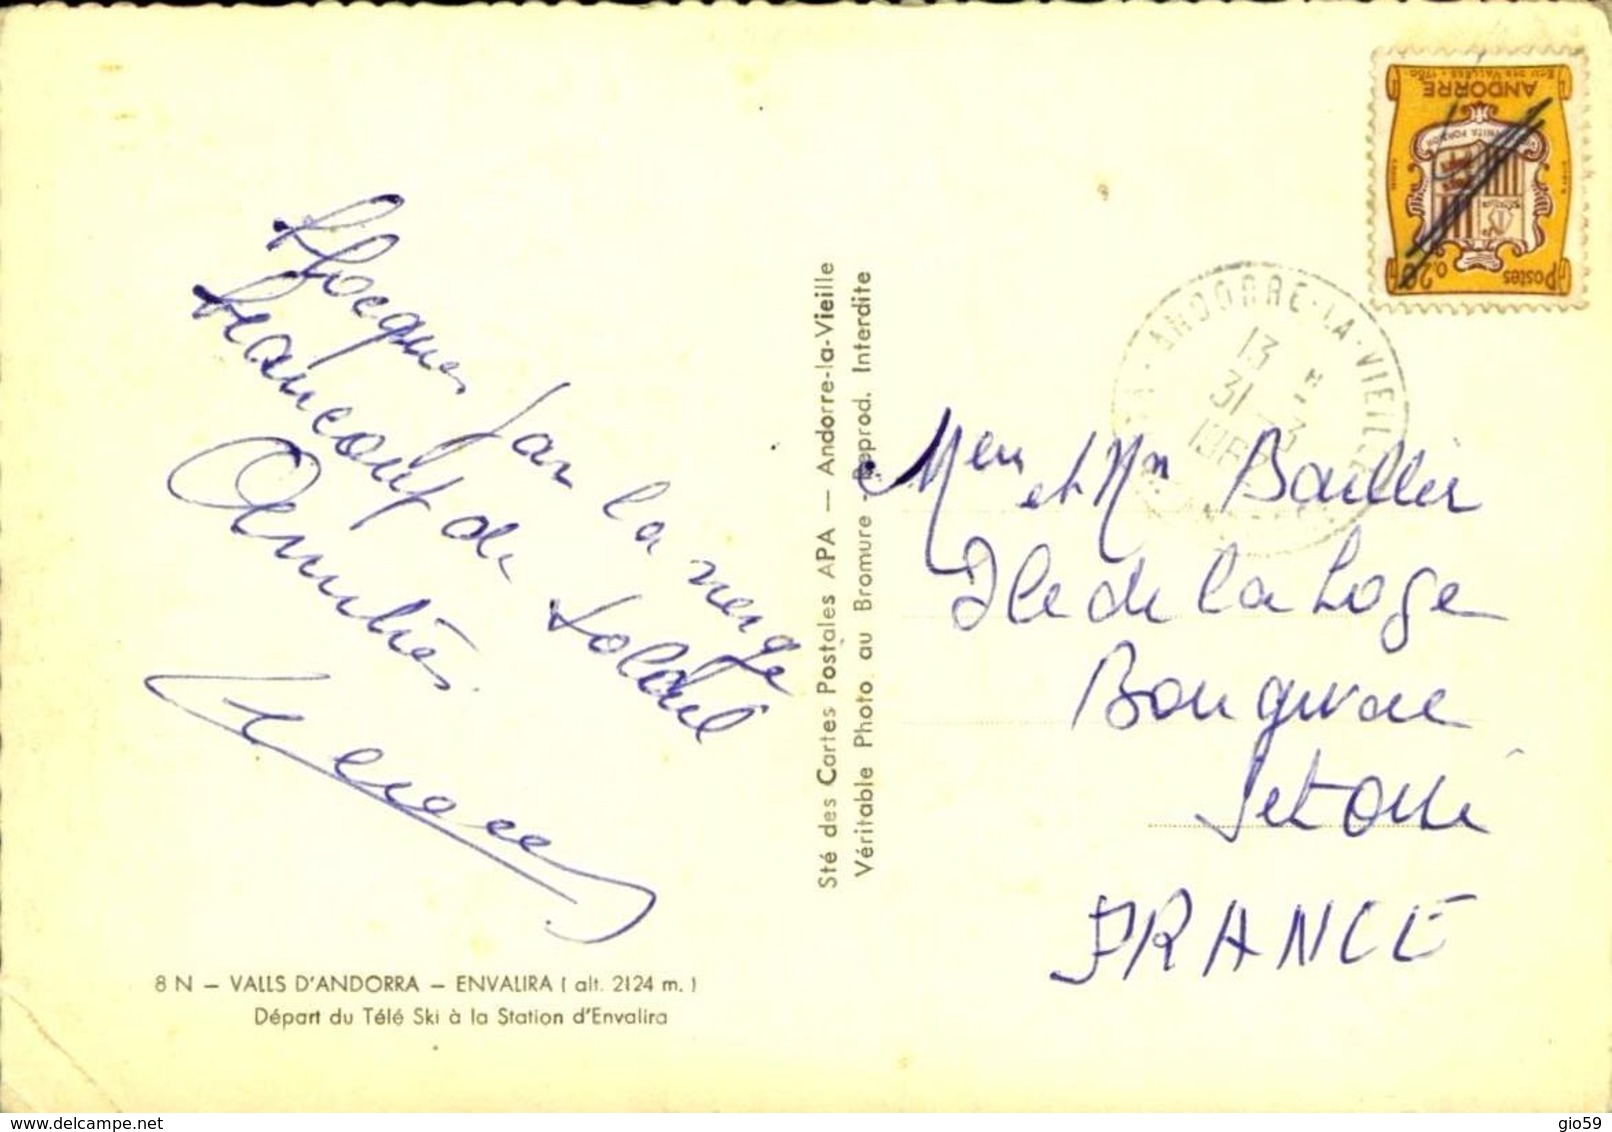 ECU DES VALLEES · 1760
ANDORRE
0,20
Postes
ANDORRE-LA-VIEILLE
13 H
31-3
par la neige
beaucoup de soleil
Amitiés
Mr et Mme
Ile de la Loge
Bougival
Set Oise
FRANCE
Sté des Cartes Postales APA — Andorre-la-Vieille
Véritable Photo au Bromure - Reprod. Interdite
8 N — VALLS D'ANDORRA — ENVALIRA ( alt. 2124 m. )
Départ du Télé Ski à la Station d'Envalira
gio59